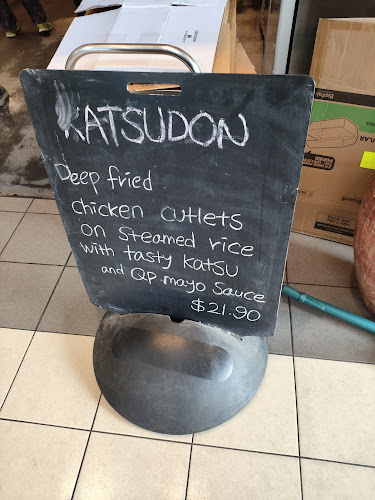 KATSUDON
Deep fried
chicken cutlets
on steamed rice
with tasty katsu
and QP.mayo sauce
$21.90